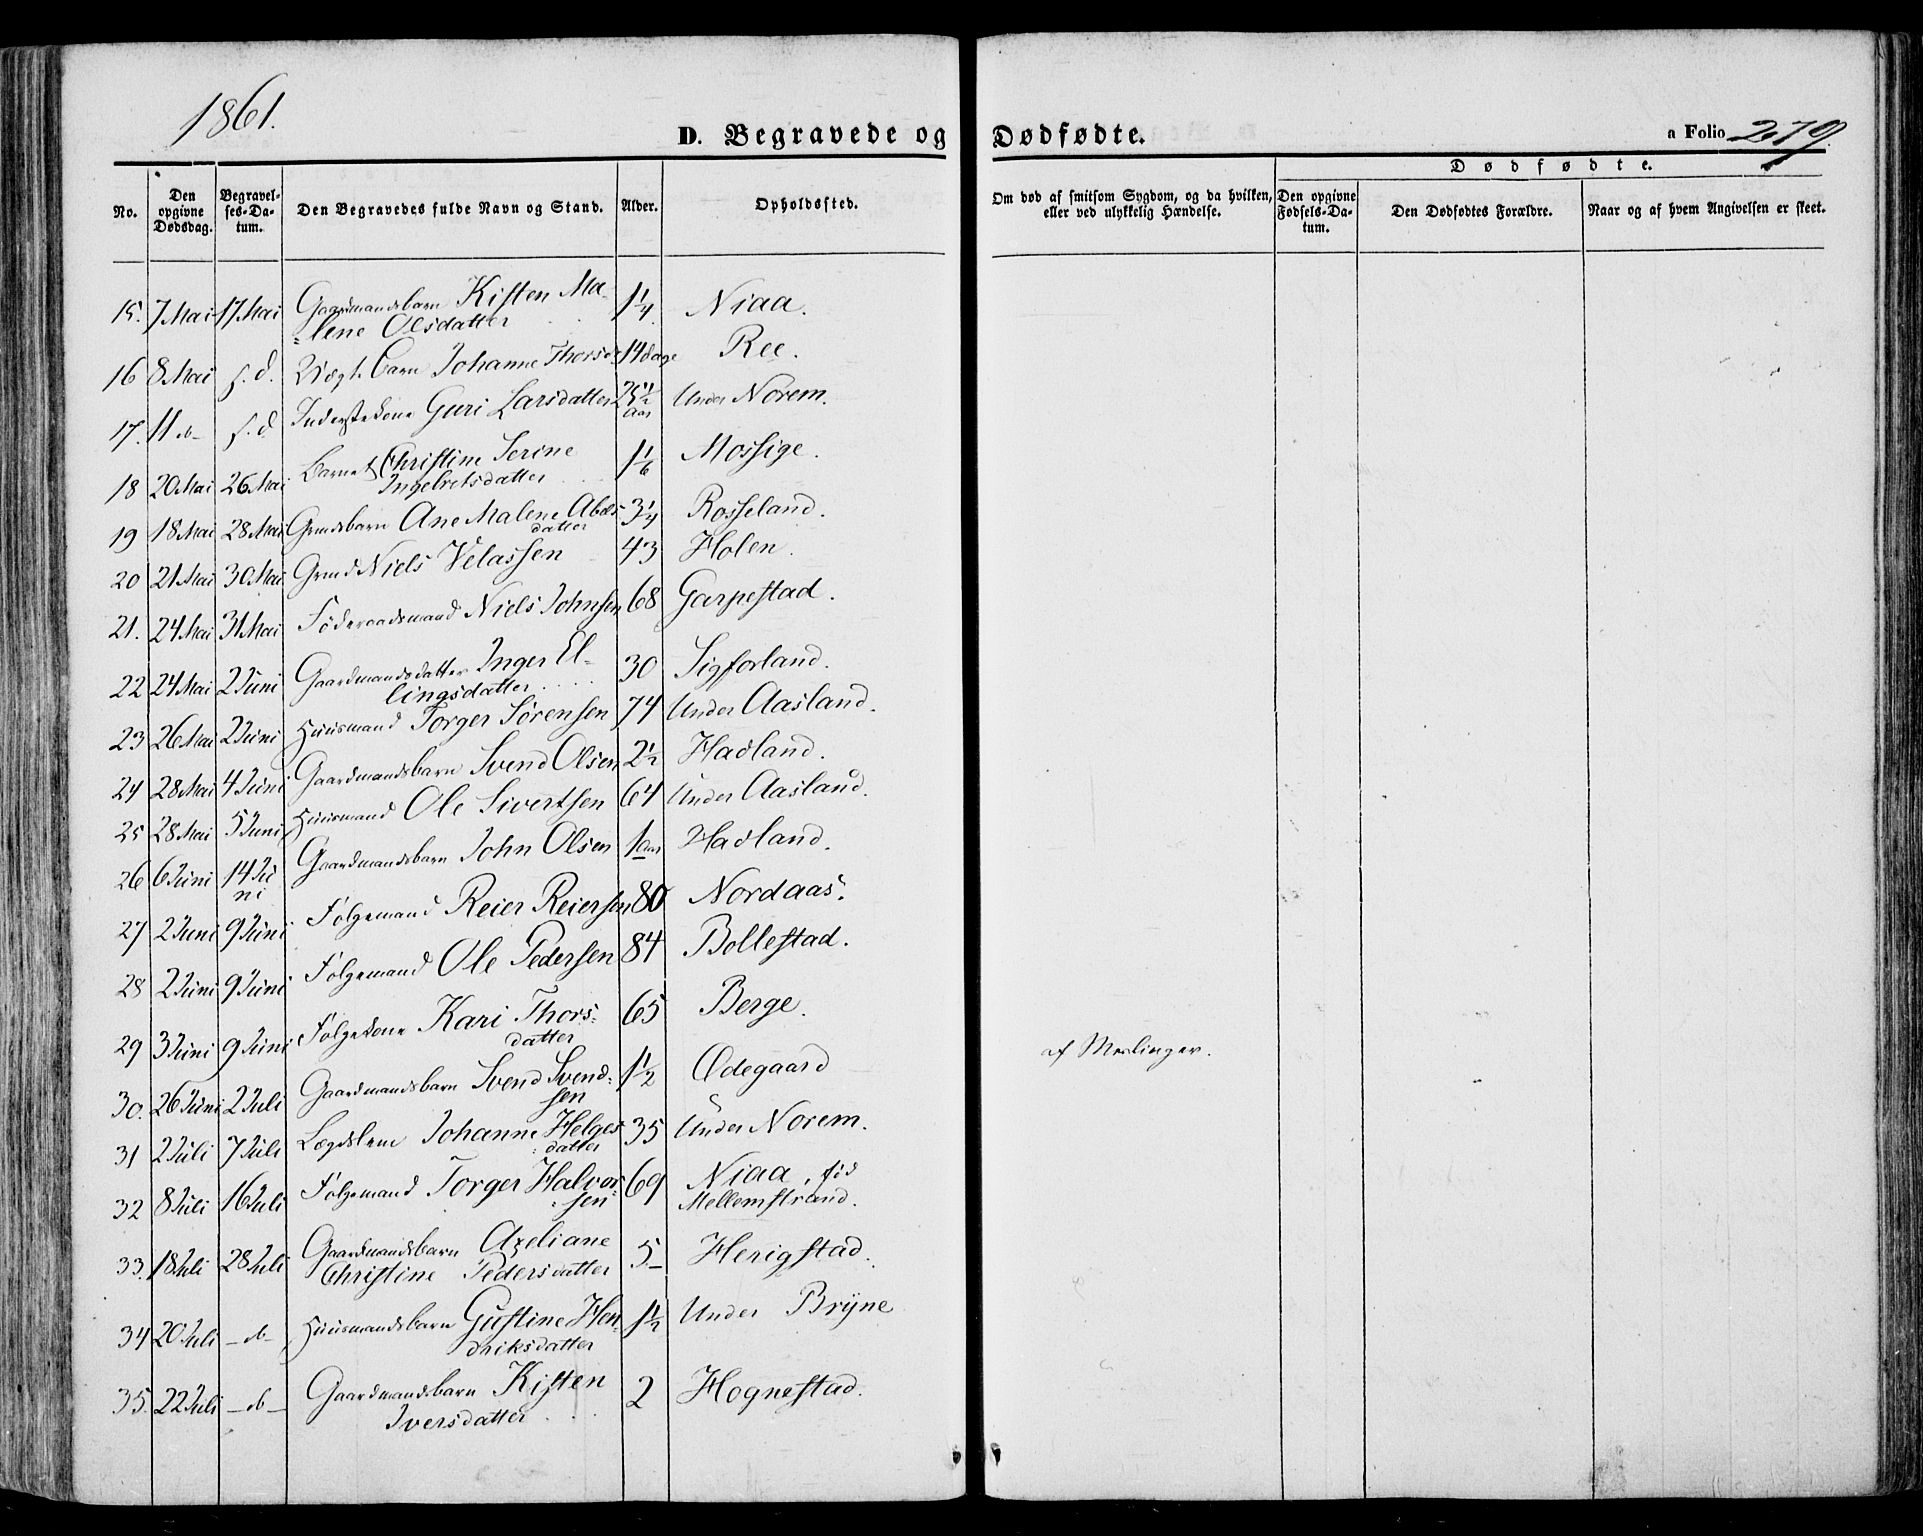 1861.
D. Begravede og Dødfødte.
a Folio 279.
No.
Den opgivne Dødsdag.
Begravel-ses-Da-tum.
Den Begravedes fulde Navn og Stand.
Alder.
Opholdssted.
Om død af smitsom Sygdom, og da hvilken, eller ved ulykkelig Hændelse.
Dødfødte.
Den opgivne Fødsels-Da-tum.
Den Dødfødtes Forældre.
Naar og af hvem Angivelsen er skeet.
15. 7 Mai 17 Mai Gaardmandsbarn Kisten Ma- 1 1/4 Niaa.
lene Olsdatter
16 8 Mai s. d. Barn Johanne Thorsd: 14 dage Ree.
17. 11 s. d. Inderstekone Guri Larsdatter 25 1/2 Aar Under Norem.
18 20 Mai 26 Mai Barnet Christine Serine 1 1/6 Mossige.
Ingebretsdatter
19 18 Mai 28 Mai Grmdsbarn Ane Malene Abels 3 1/4 Rosseland.
datter
20 21 Mai 30 Mai Grmd Niels Velassen 43 Holen.
21. 24 Mai 31 Mai Föderaadsmand Niels Johnsen 68 Garpestad.
22 24 Mai 2 Juni Gaardmandsdatter Inger El- 30 Sigforland.
lingsdatter
23 26 Mai 2 Juni Huusmand Torger Sörensen 74 Under Aasland.
24 28 Mai 4 Juni Gaardmandsbarn Svend Olsen 2 1/2 Hadland.
25 28 Mai 5 Juni Huusmand Ole Sivertsen 64 Under Aasland.
26 6 Juni 14 Ju Gaardmandsbarn John Olsen 1 Aar Hadland.
ni
27 2 Juni 9 Juni Følgemand Reier Reiersen 80 Nordaas.
28 2 Juni 9 Juni Følgemand Ole Pedersen 84 Bollestad.
29 3 Juni 9 Juni Følgekone Kari Thors: 65 Berge.
datter
30. 26 Juni 2 Juli Gaardmandsbarn Svend Svend: 1 1/2 Ødegaard af Meslinger.
sen
31 2 Juli 7 Juli Lægdslem Johanne Helges 35 Under Norem.
datter
32 8 Juli 16 Juli Følgemand Torger Halvor: 69 Niaa, fød
sen Mellemstrand.
33. 18 Juli 28 Juli Gaardmandsbarn Axeliane 5 Herigstad.
Christine Pedersdatter
34 20 Juli Huusmandsbarn Gustine Hen: 1 1/2 Under Bryne
driksdatter
35. 22 Juli Gaardmandsbarn Kisten 2 Hognestad.
Iversdatter